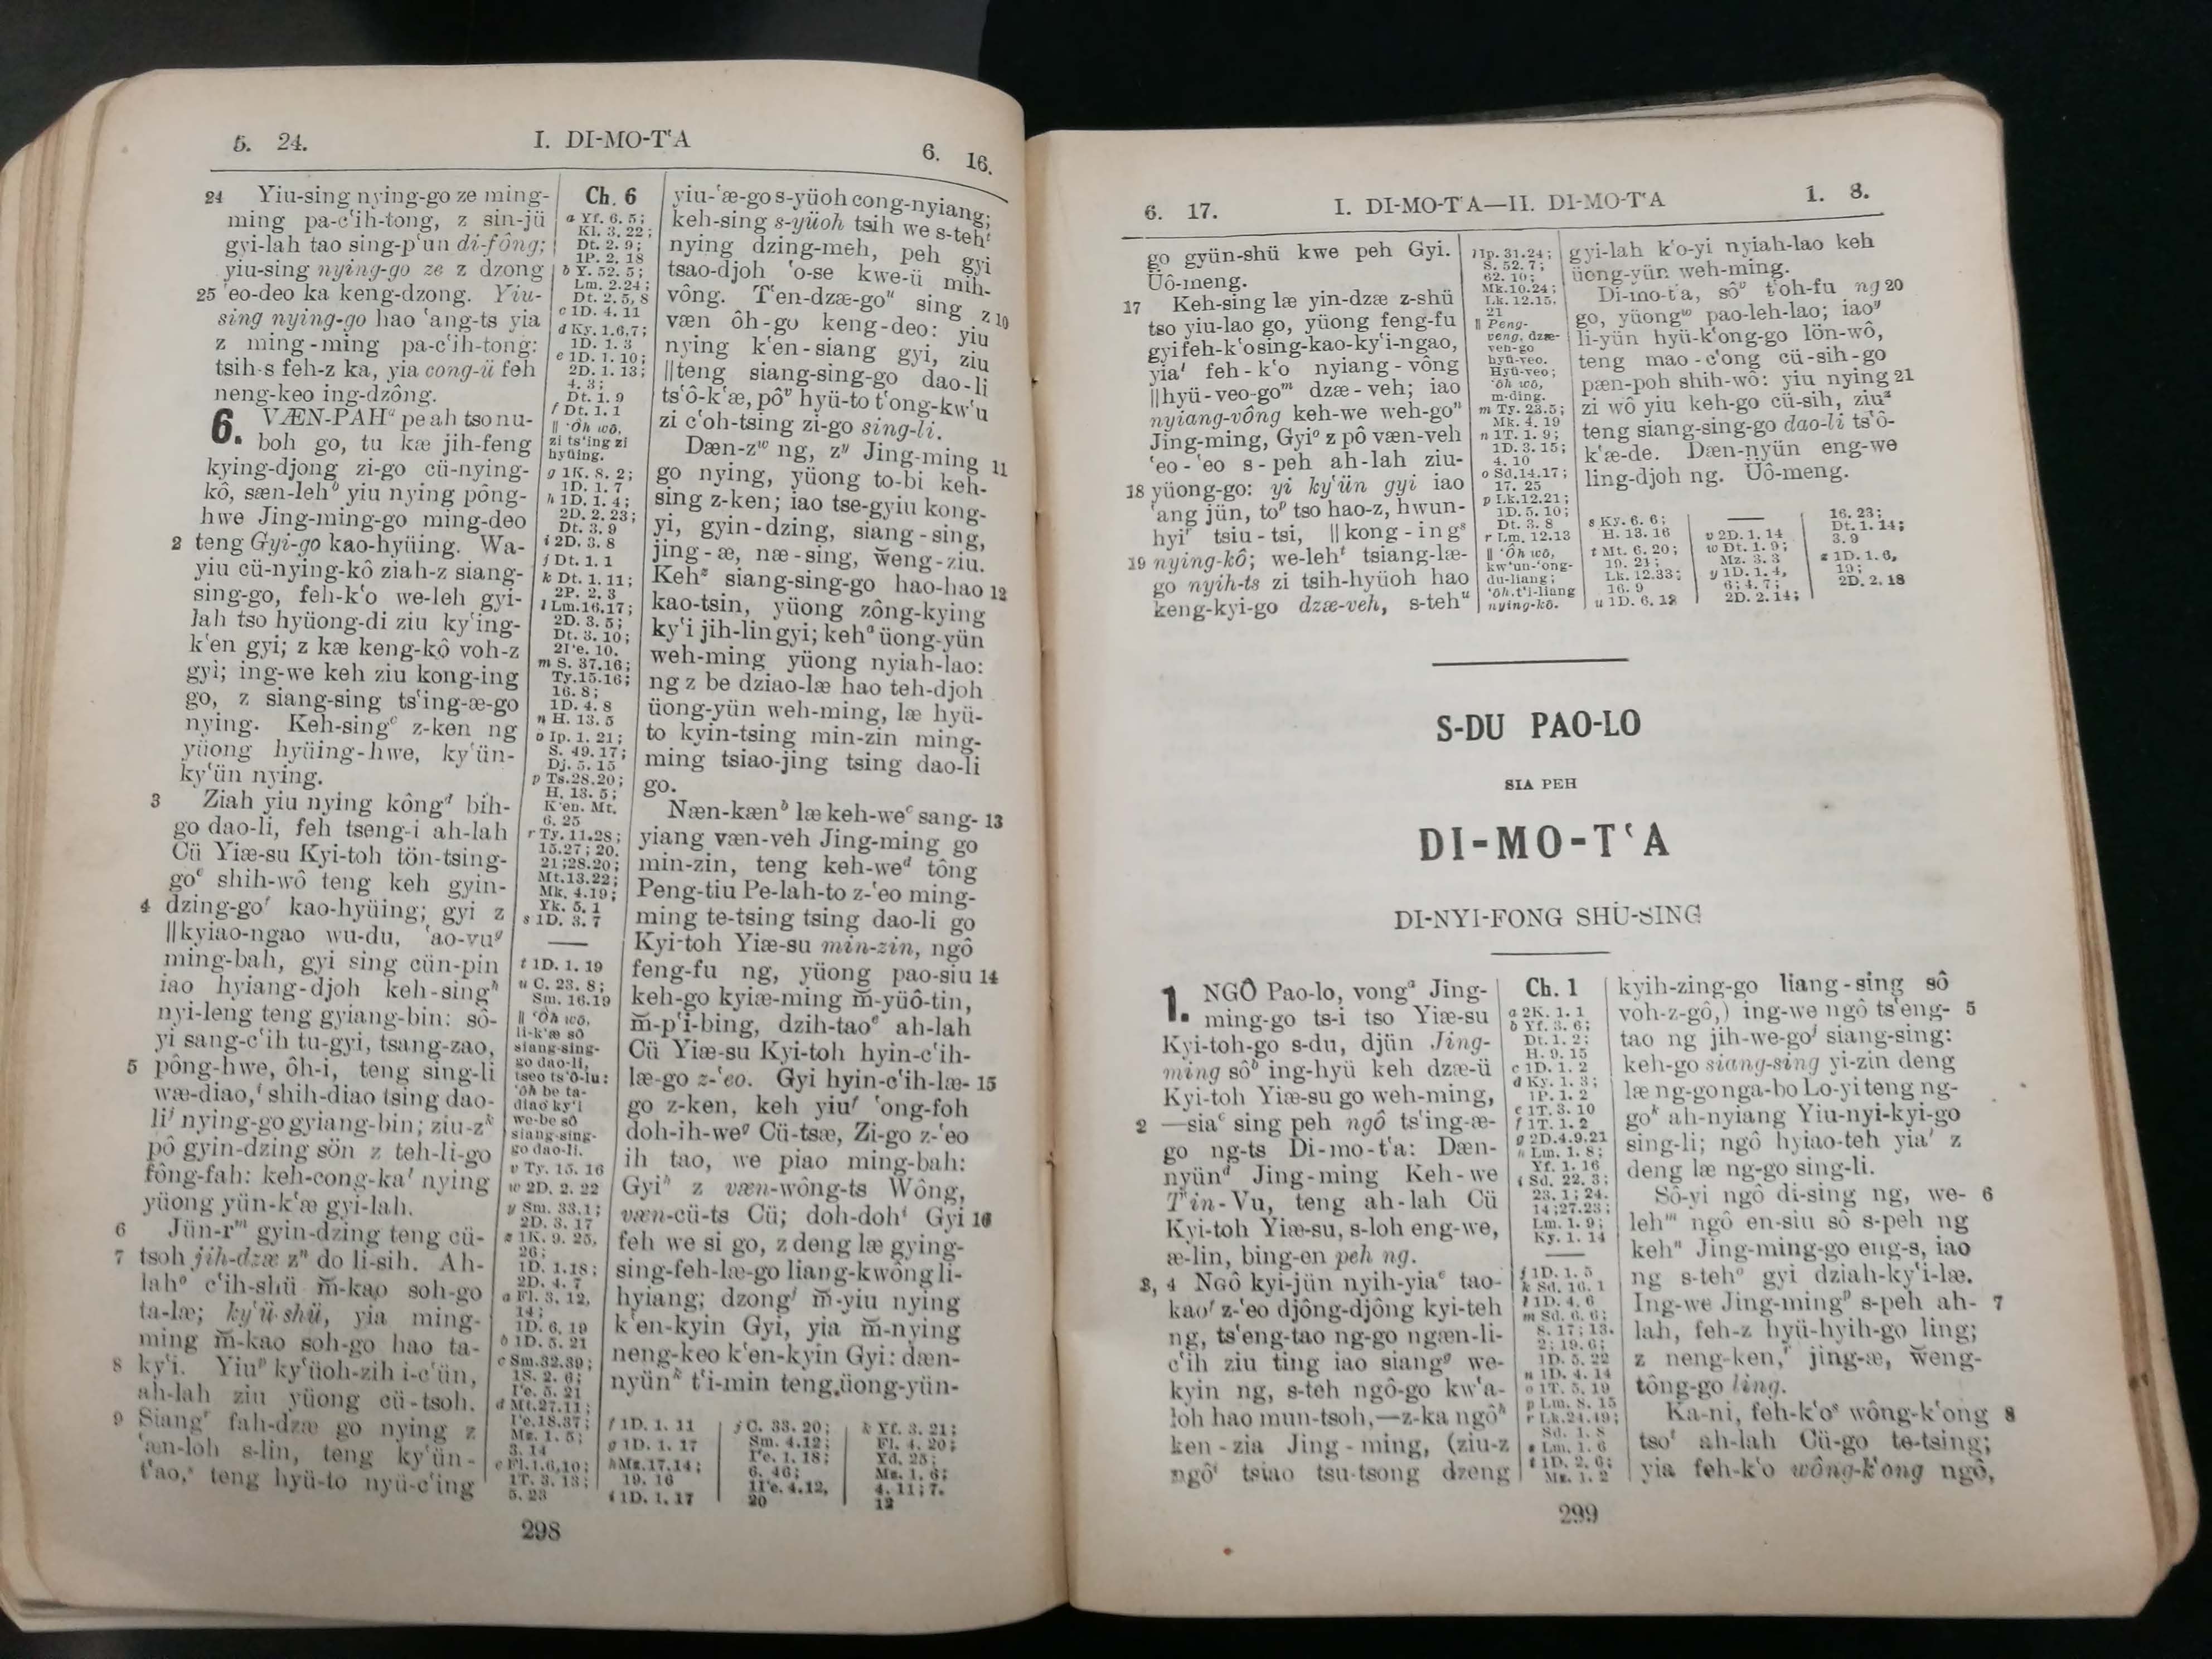 5. 24. I. DI-MO-TʻA 6. 16.
24 Yiu-sing nying-go ze ming-
ming pa-cʻih-tong, z sin-jü
gyi-lah tao sing-pʻun di-fông;
yiu-sing nying-go ze z dzong
25 ʻeo-deo ka keng-dzong. Yiu-
sing nying-go hao ʻang-ts yia
z ming-ming pa-cʻih-tong:
tsih-s feh-z ka, yia cong-ü feh
neng-keo ing-dzông.
6. VÆN-PAHᵃ pe ah tso nu-
boh go, tu kæ jih-feng
kying-djong zi-go cü-nying-
kô, sæn-lehᵇ yiu nying pông-
hwe Jing-ming-go ming-deo
2 teng Gyi-go kao-hyüing. Wa-
yiu cü-nying-kô ziah-z siang-
sing-go, feh-kʻo we-leh gyi-
lah tso hyüong-di ziu kyʻing-
kʻen gyi; z kæ keng-kô voh-z
gyi; ing-we keh ziu kong-ing
go, z siang-sing tsʻing-æ-go
nying. Keh-singᶜ z-ken ng
yüong hyüing-hwe, kyʻün-
kyʻün nying.
3 Ziah yiu nying kôngᵈ bih-
go dao-li, feh tseng-i ah-lah
Cü Yiæ-su Kyi-toh tön-tsing-
goᵉ shih-wô teng keh gyin-
4 dzing-goᶠ kao-hyüing; gyi z
‖kyiao-ngao wu-du, ʻao-vuᵍ
ming-bah, gyi sing cün-pin
iao hyiang-djoh keh-singʰ
nyi-leng teng gyiang-bin: sô-
yi sang-cʻih tu-gyi, tsang-zao,
5 pông-hwe, ôh-i, teng sing-li
wæ-diao,ⁱ shih-diao tsing dao-
liʲ nying-go gyiang-bin; ziu-zᵏ
pô gyin-dzing sön z teh-li-go
fông-fah: keh-cong-kaˡ nying
yüong yün-kʻæ gyi-lah.
6 Jün-rᵐ gyin-dzing teng cü-
7 tsoh jih-dzæ zⁿ do li-sih. Ah-
lahᵒ cʻih-shü m̆-kao soh-go
ta-læ; kyʻü-shü, yia ming-
ming m̆-kao soh-go hao ta-
8 kyʻi. Yiuᵖ kyʻüoh-zih i-cʻün,
ah-lah ziu yüong cü-tsoh.
9 Siangʳ fah-dzæ go nying z
ʻæn-loh s-lin, teng kyʻün-
tʻao,ˢ teng hyü-to nyü-cʻing
Ch. 6
a Yf. 6. 5;
Kl. 3. 22;
Dt. 2. 9;
1P. 2. 18
b Y. 52. 5;
Lm. 2.24;
Dt. 2. 5, 8
c 1D. 4. 11
d Ky. 1.6,7;
1D. 1. 3
e 1D. 1. 10;
2D. 1. 13;
4. 3;
Dt. 1. 9
f Dt. 1. 1
‖ ʻÔh wô,
zi tsʻing zi
hyüing.
g 1K. 8. 2;
1D. 1. 7
h 1D. 1. 4;
2D. 2. 23;
Dt. 3. 9
i 2D. 3. 8
j Dt. 1. 1
k Dt. 1. 11;
2P. 2. 3
l Lm.16.17;
2D. 3. 5;
Dt. 3. 10;
m S. 37.16;
Ty.15.16;
16. 8;
1D. 4. 8
n H. 13. 5
o Ip. 1. 21;
S. 49. 17;
Dj. 5. 15
p Ts.28.20;
H. 13. 5;
Kʻen. Mt.
6. 25
r Ty. 11.28;
15.27; 20.
21;28.20;
Mt.13.22;
Mk. 4.19;
Yk. 5. 1
s 1D. 3. 7
t 1D. 1. 19
u C. 23. 8;
Sm. 16.19
‖ ʻÔh wô,
li-kʻæ sô
siang-sing-
go dao-li,
tseo tsʻô-lu:
ʻôh be ta-
diao kyʻi
we-be sô
siang-sing-
go dao-li.
v Ty. 15. 16
w 2D. 2. 22
y Sm. 33.1;
2D. 3. 17
z 1K. 9. 25,
26;
1D. 1.18;
2D. 4. 7
a Fl. 3. 12,
14;
1D. 6. 19
b 1D. 5. 21
c Sm.32.39;
1S. 2. 6;
d Mt.27.11;
e Fl.1.6,10;
1T. 3. 13;
5. 23
yiu-ʻæ-go s-yüoh cong-nyiang;
keh-sing s-yüoh tsih we s-tehᵗ
nying dzing-meh, peh gyi
tsao-djoh ʻo-se kwe-ü mih-
vông. Tʻen-dzæ-goᵘ sing z 10
væn ôh-go keng-deo: yiu
nying kʻen-siang gyi, ziu
‖teng siang-sing-go dao-li
tsʻô-kʻæ, pôᵛ hyü-to tʻong-kwʻu
zi cʻoh-tsing zi-go sing-li.
Dæn-zʷ ng, zʸ Jing-ming 11
go nying, yüong to-bi keh-
sing z-ken; iao tse-gyiu kong-
yi, gyin-dzing, siang-sing,
jing-æ, næ-sing, w̆eng-ziu.
Kehᶻ siang-sing-go hao-hao 12
kao-tsin, yüong zông-kying
kyʻi jih-lin gyi; kehᵃ üong-yün
weh-ming yüong nyiah-lao:
ng z be dziao-læ hao teh-djoh
üong-yün weh-ming, læ hyü-
to kyin-tsing min-zin ming-
ming tsiao-jing tsing dao-li
go.
Næn-kænᵇ læ keh-weᶜ sang- 13
yiang væn-veh Jing-ming go
min-zin, teng keh-weᵈ tông
Peng-tiu Pe-lah-to z-ʻeo ming-
ming te-tsing tsing dao-li go
Kyi-toh Yiæ-su min-zin, ngô
feng-fu ng, yüong pao-siu 14
keh-go kyiæ-ming m̆-yüô-tin,
m̆-pʻi-bing, dzih-taoᵉ ah-lah
Cü Yiæ-su Kyi-toh hyin-cʻih-
læ-go z-ʻeo. Gyi hyin-cʻih-læ- 15
go z-ken, keh yiuᶠ ʻong-foh
doh-ih-weᵍ Cü-tsæ, Zi-go z-ʻeo
ih tao, we piao ming-bah:
Gyiʰ z væn-wông-ts Wông,
væn-cü-ts Cü; doh-dohⁱ Gyi 16
feh we si go, z deng læ gying-
sing-feh-læ-go liang-kwông li-
hyiang; dzongʲ m̆-yiu nying
kʻen-kyin Gyi, yia m̆-nying
neng-keo kʻen-kyin Gyi: dæn-
nyünᵏ tʻi-min teng üong-yün-
f 1D. 1. 11
g 1D. 1. 17
h Mz.17.14;
19. 16
i 1D. 1. 17
j C. 33. 20;
Sm. 4.12;
6. 46;
20
k Yf. 3. 21;
Fl. 4. 20;
Yd. 25;
Mz. 1. 6;
4. 11; 7.
12
298
6. 17. I. DI-MO-TʻA—II. DI-MO-TʻA 1. 8.
go gyün-shü kwe peh Gyi.
Üô-meng.
17 Keh-sing læ yin-dzæ z-shü
tso yiu-lao go, yüong feng-fu
gyi feh-kʻo sing-kao-kyʻi-ngao,
yiaˡ feh-kʻo nyiang-vông
‖hyü-veo-goᵐ dzæ-veh; iao
nyiang-vông keh-we weh-goⁿ
Jing-ming, Gyiᵒ z pô væn-veh
ʻeo-ʻeo s-peh ah-lah ziu-
18 yüong-go: yi kyʻün gyi iao
ʻang jün, toᵖ tso hao-z, hwun-
hyiʳ tsiu-tsi, ‖kong-ingˢ
19 nying-kô; we-lehᵗ tsiang-læ-
go nyih-ts zi tsih-hyüoh hao
keng-kyi-go dzæ-veh, s-tehᵘ
l Ip. 31.24;
S. 52. 7;
62. 10;
Mk.10.24;
Lk. 12.15,
21
‖ Peng-
veng, dzæ-
veh-go
hyü-veo.
Hyü-veo;
ʻôh wô,
m-ding.
m Ty. 23.5;
Mk. 4. 19
n 1T. 1. 9;
1D. 3. 15;
4. 10
o Sd.14.17;
17. 25
p Lk.12.21;
1D. 5. 10;
Dt. 3. 8
r Lm. 12.13
‖ ʻÔh wô,
kwʻun-ʻong-
du-liang;
ʻôh,tʻi-liang
nying-kô.
gyi-lah kʻo-yi nyiah-lao keh
üong-yün weh-ming.
Di-mo-tʻa, sôᵛ tʻoh-fu ng 20
go, yüongʷ pao-leh-lao; iaoʸ
li-yün hyü-kʻong-go lön-wô,
teng mao-cʻong cü-sih-go
pæn-poh shih-wô: yiu nying 21
zi wô yiu keh-go cü-sih, ziuᶻ
teng siang-sing-go dao-li tsʻô-
kʻæ-de. Dæn-nyün eng-we
ling-djoh ng. Üô-meng.
s Ky. 6. 6;
H. 13. 16
t Mt. 6. 20;
19. 21;
Lk. 12.33;
16. 9
u 1D. 6. 12
v 2D. 1. 14
w Dt. 1. 9;
Mz. 3. 3
y 1D. 1. 4,
6; 4. 7;
2D. 2. 14;
16. 23;
Dt. 1. 14;
3. 9
z 1D. 1. 6,
19;
2D. 2. 18
S-DU PAO-LO
SIA PEH
DI-MO-TʻA
DI-NYI-FONG SHÜ-SING
1. NGÔ Pao-lo, vongᵃ Jing-
ming-go ts-i tso Yiæ-su
Kyi-toh-go s-du, djün Jing-
ming sôᵇ ing-hyü keh dzæ-ü
Kyi-toh Yiæ-su go weh-ming,
2 —siaᶜ sing peh ngô tsʻing-æ-
go ng-ts Di-mo-tʻa: Dæn-
nyünᵈ Jing-ming Keh-we
Tʻin-Vu, teng ah-lah Cü
Kyi-toh Yiæ-su, s-loh eng-we,
æ-lin, bing-en peh ng.
3, 4 NGÔ kyi-jün nyih-yiaᵉ tao-
kaoᶠ z-ʻeo djông-djông kyi-teh
ng, tsʻeng-tao ng-go ngæn-li-
cʻih ziu ting iao siangᵍ we-
kyin ng, s-teh ngô-go kwʻa-
loh hao mun-tsoh,—z-ka ngôʰ
ken-zia Jing-ming, (ziu-z
ngôⁱ tsiao tsu-tsong dzeng
Ch. 1
a 2K. 1. 1
b Yf. 3. 6;
Dt. 1. 2;
H. 9. 15
c 1D. 1. 2
d Ky. 1. 3;
1P. 1. 2
e 1T. 3. 10
f 1T. 1. 2
g 2D.4.9,21
h Lm. 1. 8;
Yf. 1. 16
i Sd. 22. 3;
23. 1; 24.
14;27.23;
Lm. 1. 9;
Ky. 1. 14
j 1D. 1. 5
k Sd. 16. 1
l 1D. 4. 6
m Sd. 6. 6;
8. 17; 13.
2; 19. 6;
1D. 5. 22
n 1D. 4. 14
o 1T. 5. 19
p Lm. 8. 15
r Lk.24.49;
Sd. 1. 8
s Lm. 1. 6
t 1D. 2. 6;
Mz. 1. 2
kyih-zing-go liang-sing sô
voh-z-gô,) ing-we ngô tsʻeng- 5
tao ng jih-we-goʲ siang-sing:
keh-go siang-sing yi-zin deng
læ ng-go nga-bo Lo-yi teng ng-
goᵏ ah-nyiang Yiu-nyi-kyi-go
sing-li; ngô hyiao-teh yiaˡ z
deng læ ng-go sing-li.
Sô-yi ngô di-sing ng, we- 6
lehᵐ ngô en-siu sô s-peh ng
kehⁿ Jing-ming-go eng-s, iao
ng s-tehᵒ gyi dziah-kyʻi-læ.
Ing-we Jing-mingᵖ s-peh ah- 7
lah, feh-z hyü-hyih-go ling;
z neng-ken,ʳ jing-æ, w̆eng-
tông-go ling.
Ka-ni, feh-kʻoˢ wông-kʻong 8
tsoᵗ ah-lah Cü-go te-tsing;
yia feh-kʻo wông-kʻong ngô,
299